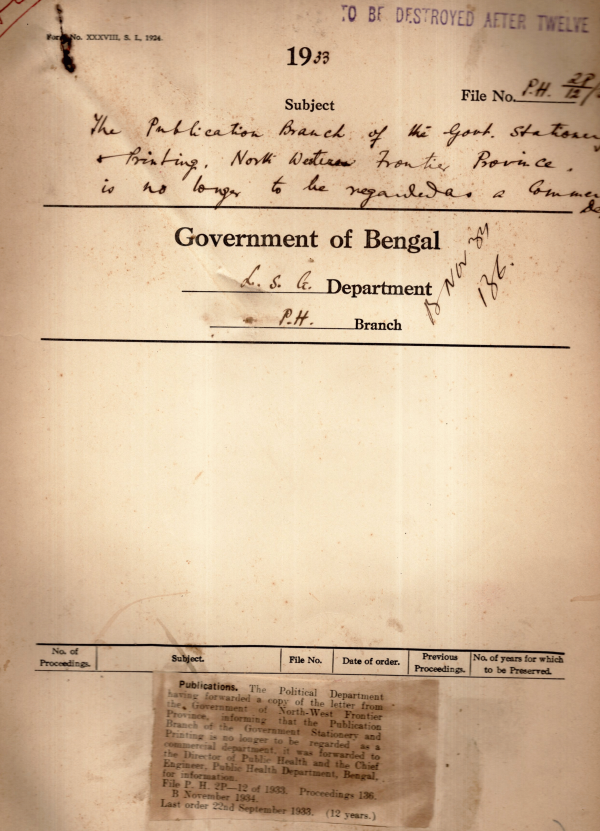 TO BE DESTROYED AFTER TWELVE
Form No. XXXVIII, S. I., 1924.
1933
File No. P.H. 2P/12
Subject
The Publication Branch of the Govt. Stationery
& Printing, North Western Frontier Province,
is no longer to be regarded as a Commer
De
Government of Bengal
L. S. G. Department
P.H. Branch
B Nov 34
136.
No. of Proceedings. Subject. File No. Date of order. Previous Proceedings. No. of years for which to be Preserved.
Publications. The Political Department
having forwarded a copy of the letter from
the Government of North-West Frontier
Province, informing that the Publication
Branch of the Government Stationery and
Printing is no longer to be regarded as a
commercial department, it was forwarded to
the Director of Public Health and the Chief
Engineer, Public Health Department, Bengal,
for information.
File P. H. 2P—12 of 1933. Proceedings 136.
B November 1934.
Last order 22nd September 1933. (12 years.)